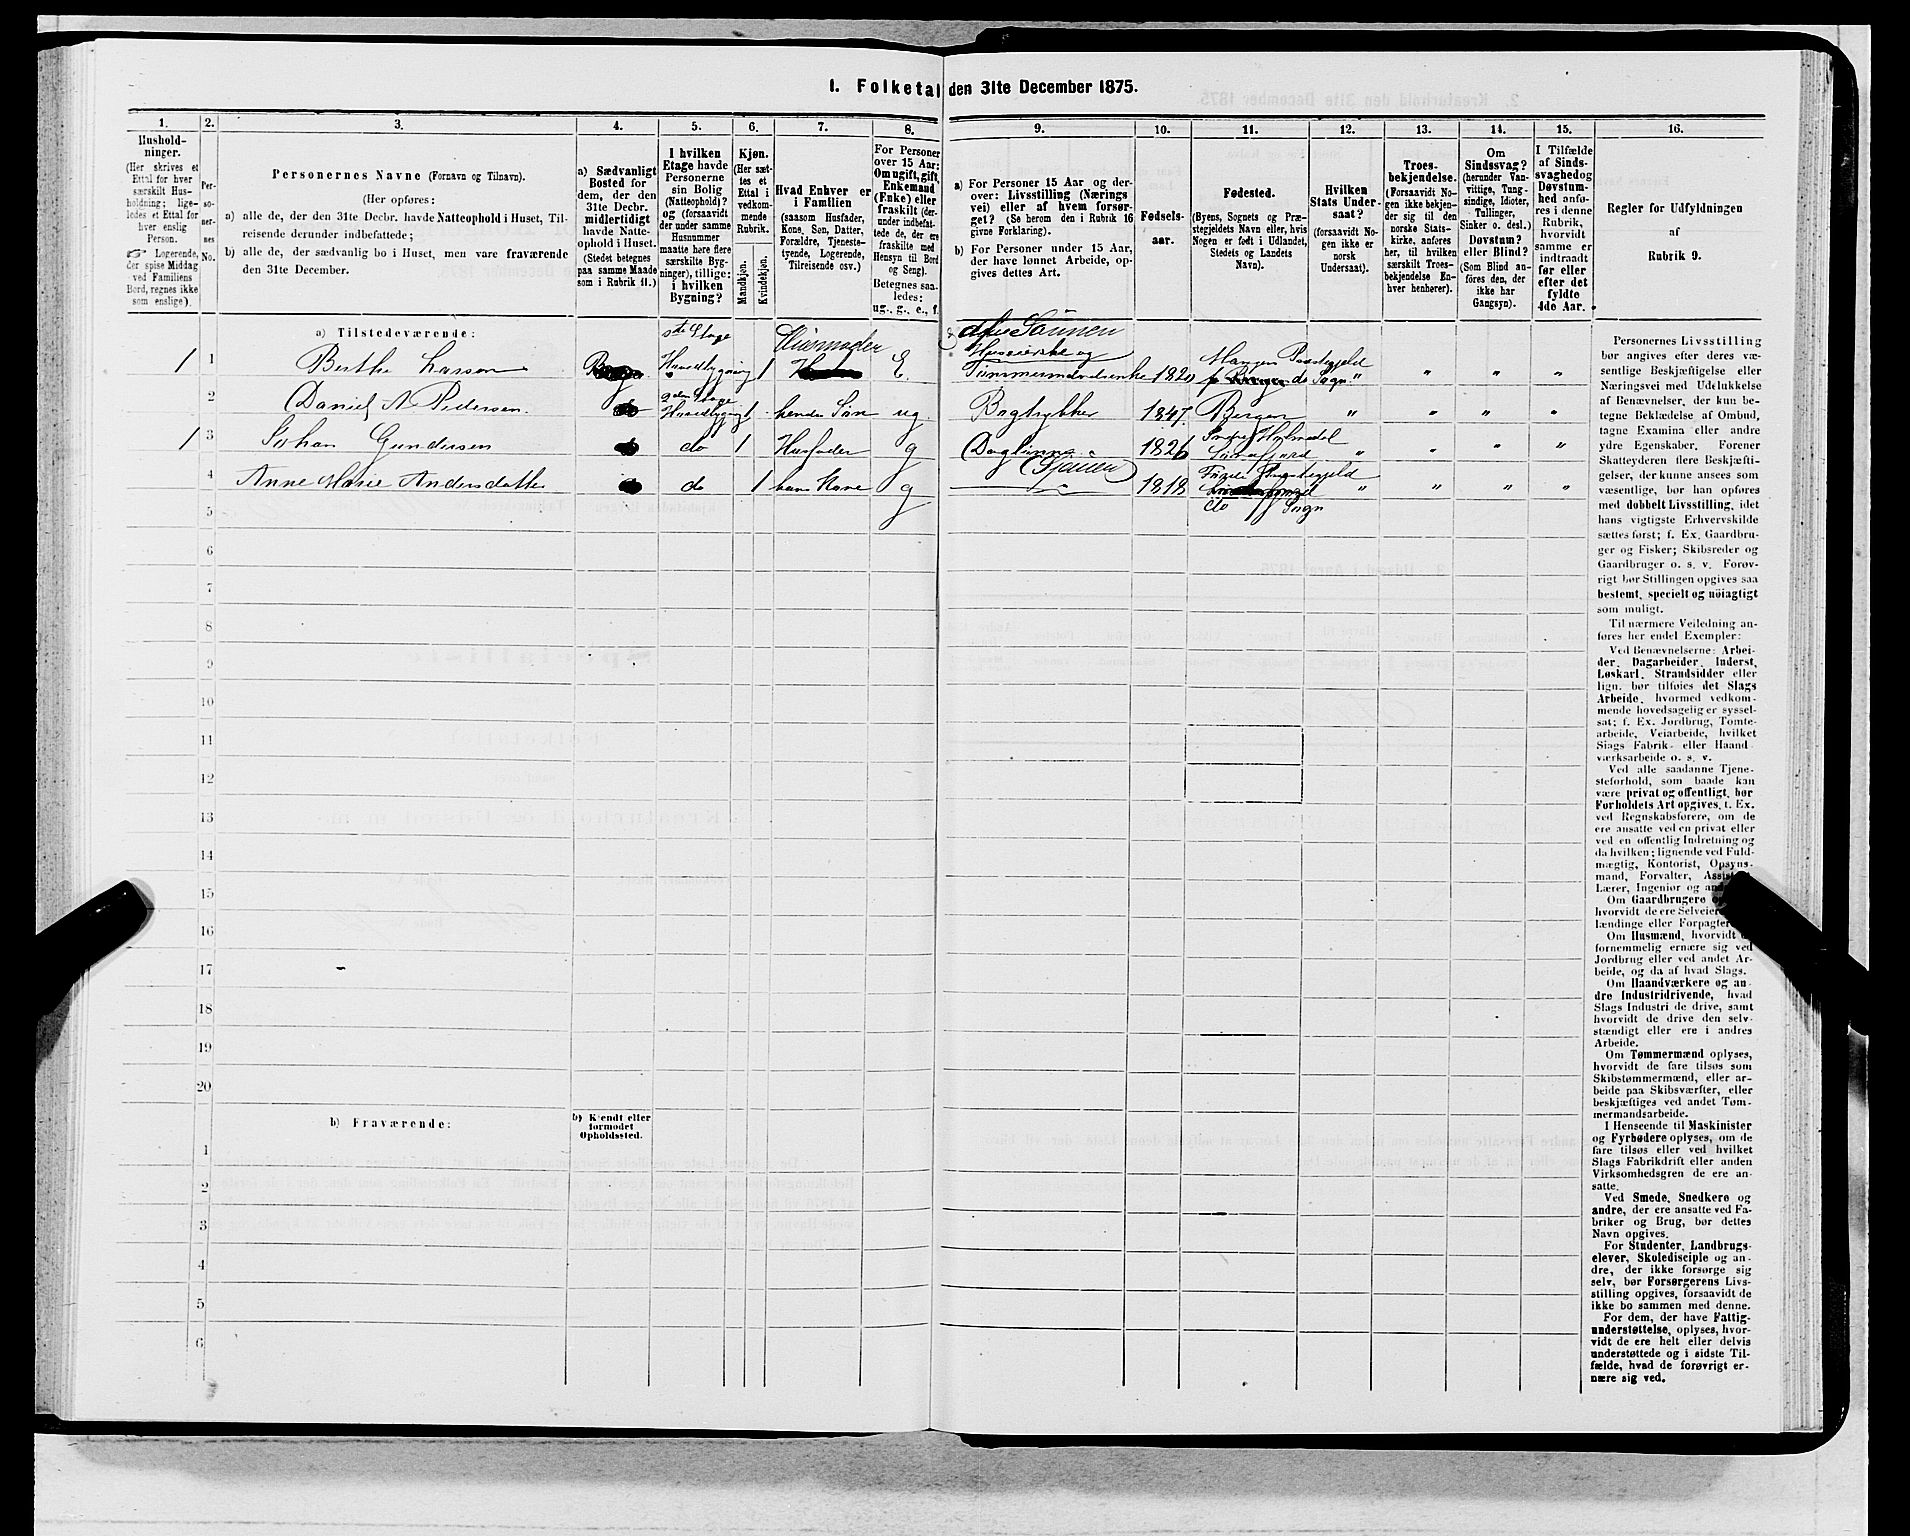 1. Folketal den 31te December 1875.
1.
Hushold-
ninger.
(Her skrives et
Ettal for hver
særskilt Hus-
holdning; lige-
ledes et Ettal for
hver enslig
Person.
Logerende,
der spise Middag
ved Familiens
Bord, regnes ikke
som enslige).
2.
Per-
so-
ner-
nes
No.
3.
Personernes Navne (Fornavn og Tilnavn).
(Her opføres:
a) alle de, der den 31te Decbr. havde Natteophold i Huset, Til-
reisende derunder indbefattede;
b) alle de, der sædvanlig bo i Huset, men vare fraværende
den 31te December.
4.
a) Sædvanligt
Bosted for
dem, der den
31te Decbr.
midlertidigt
havde Natte-
ophold i Huset.
(Stedet betegnes
paa samme Maade
som i Rubrik 11.)
5.
I hvilken
Etage havde
Personerne
sin Bolig
(Natteophold)?
og (forsaavidt
der under samme
Husnummer
maatte høre flere
særskilte Byg-
ninger), tillige:
i hvilken
Bygning?
6.
Kjøn.
(Her sæt-
tes et
Ettal i
vedkom-
mende
Rubrik.
Mandkjøn.
Kvindekjøn.
7.
Hvad Enhver er
i Familien
(saasom Husfader,
Kone, Søn, Datter,
Forældre, Tjeneste-
tyende, Logerende,
Tilreisende osv.)
8.
For Personer
over 15 Aar:
Om ugift, gift,
Enkemand
(Enke) eller
fraskilt (der-
under indbefat-
tede de, der ere
fraskilte med
Hensyn til Bord
og Seng).
Betegnes saa-
ledes:
ug., g., e., f.
9.
a) For Personer 15 Aar og der-
over: Livsstilling (Nærings
vei) eller af hvem forsør-
get? (Se herom den i Rubrik 16
givne Forklaring).
b) For Personer under 15 Aar,
der have lønnet Arbeide, op-
gives dettes Art.
10.
Fødsels-
aar.
11.
Fødested.
(Byens, Sognets og Præ-
stegjeldets Navn eller, hvis
Nogen er født i Udlandet,
Stedets og Landets
Navn).
12.
Hvilken
Stats Under-
saat?
(forsaavidt No-
gen ikke er
norsk
Undersaat).
13.
Troes-
bekjendelse.
(Forsaavidt No-
gen ikke bekjen-
der sig til den
norske Stats-
kirke, anføres
her, til hvilken
særskilt Troes-
bekjendelse En-
hver henhører).
14.
Om
Sindssvag?
(herunder Van-
vittige, Tung-
sindige, Idioter,
Tullinger,
Sinker o. desl.)
Døvstum?
eller Blind?
(Som Blind an-
føres den, der
ikke har
Gangsyn).
15.
I Tilfælde
af Sinds-
svaghed og
Døvstum-
hed anfø-
res i denne
Rubrik,
hvorvidt
samme er
indtraadt
før eller
efter det
fyldte
4de Aar.
16.
Regler for Udfyldningen
af
Rubrik 9.
a) Tilstedeværende:
1 1 Berthe Larsen Hovedbygning 1 Huusmoder E. Huseierske og 1820 Manger Præstegjeld " " " "
2 Daniel A Pedersen 2den Etage Hovedbygning 1 hendes Søn ug. Bogtrykker 1847 Bergen " " " "
1 3 Johan Gundersen do 1 Husfader g 1826 " " " "
4 Anne Marie Andersdatter do 1 hans Kone g 1818 Præstegjeld " " " "
do Sogn
5
6
7
8
9
10
11
12
13
14
15
16
17
18
19
20
b) Fraværende:
b) Kjendt eller
formodet
Opholdssted.
1
2
3
4
5
6
Personernes Livsstilling
bør angives efter deres væ-
sentlige Beskjæftigelse eller
Næringsvei med Udelukkelse
af Benævnelser, der kun be-
tegne Beklædelse af Ombud,
tagne Examina eller andre
ydre Egenskaber. Forener
Skatteyderen flere Beskjæfti-
gelser, der kunne ansees som
væsentlige, bør han opføres
med dobbelt Livsstilling, idet
hans vigtigste Erhvervskilde
sættes først; f. Ex. Gaardbru-
ger og Fisker; Skibsreder og
Gaardbruger o. s. v. Forøv-
rigt bør Stillingen opgives saa
bestemt, specielt og nöiagtigt
som muligt.
Til nærmere Veiledning an-
føres her endel Exempler:
Ved Benævnelserne: Arbei-
der, Dagarbeider, Inderst,
Løskarl, Strandsidder eller
lign. bør tilføies det Slags
Arbeide, hvormed vedkom-
mende hovedsagelig er syssel-
sat; f. Ex. Jordbrug, Tomte-
arbeide, Veiarbeide, hvilket
Slags Fabrik- eller Haand-
værksarbeide o. s. v.
Ved alle saadanne Tjene-
steforhold, som baade kan
være privat og offentligt, bør
Forholdets Art opgives, t. Ex.
ved Regnskabsførere, om de
ere ansatte ved en privat eller
ved en offentlig Indretning og
da hvilken; lignende ved Fuld-
mægtig, Kontorist, Opsyns-
mand, Forvalter,
Lærer, Ingeniør og
Om Gaardbrugere
hvorvidt de ere
lændinge eller
Om Husmænd, hvorvidt
fornemmelig ernære sig ved
Jordbrug eller ved andet Ar-
beide, og da af hvad Slags.
Om Haandværkere og an-
dre Industridrivende, hvad
Slags Industri de drive, samt
hvorvidt de drive den selv-
stændigt eller ere i andres
Arbeide.
Om Tømmermænd oplyses,
hvorvidt de fare tilsøs som
Skibstømmermænd, eller ar-
beide paa Skibsværfter, eller
beskjæftiges ved andet Tøm-
mermandsarbeide.
I Henseende til Maskinister
og Fyrbødere oplyses, om de
fare tilsøs eller ved hvilket
Slags Fabrikdrift eller anden
Virksomhedsgren de ere an-
satte.
Ved Smede, Snedkere og
andre, der ere ansatte ved Fa-
briker og Brug, bør dettes
Navn opgives.
For Studenter, Landbrugs-
elever, Skoledisciple og an-
dre, der ikke forsørge sig
selv, bør Forsørgerens Livs-
stilling opgives, forsaavidt de
ikke bo sammen med denne.
For dem, der have Fattig-
understøttelse, oplyses, hvor-
vidt de ere helt eller delvis
understøttede og i sidste Til-
fælde, hvad de forøvrigt er-
nære sig ved.